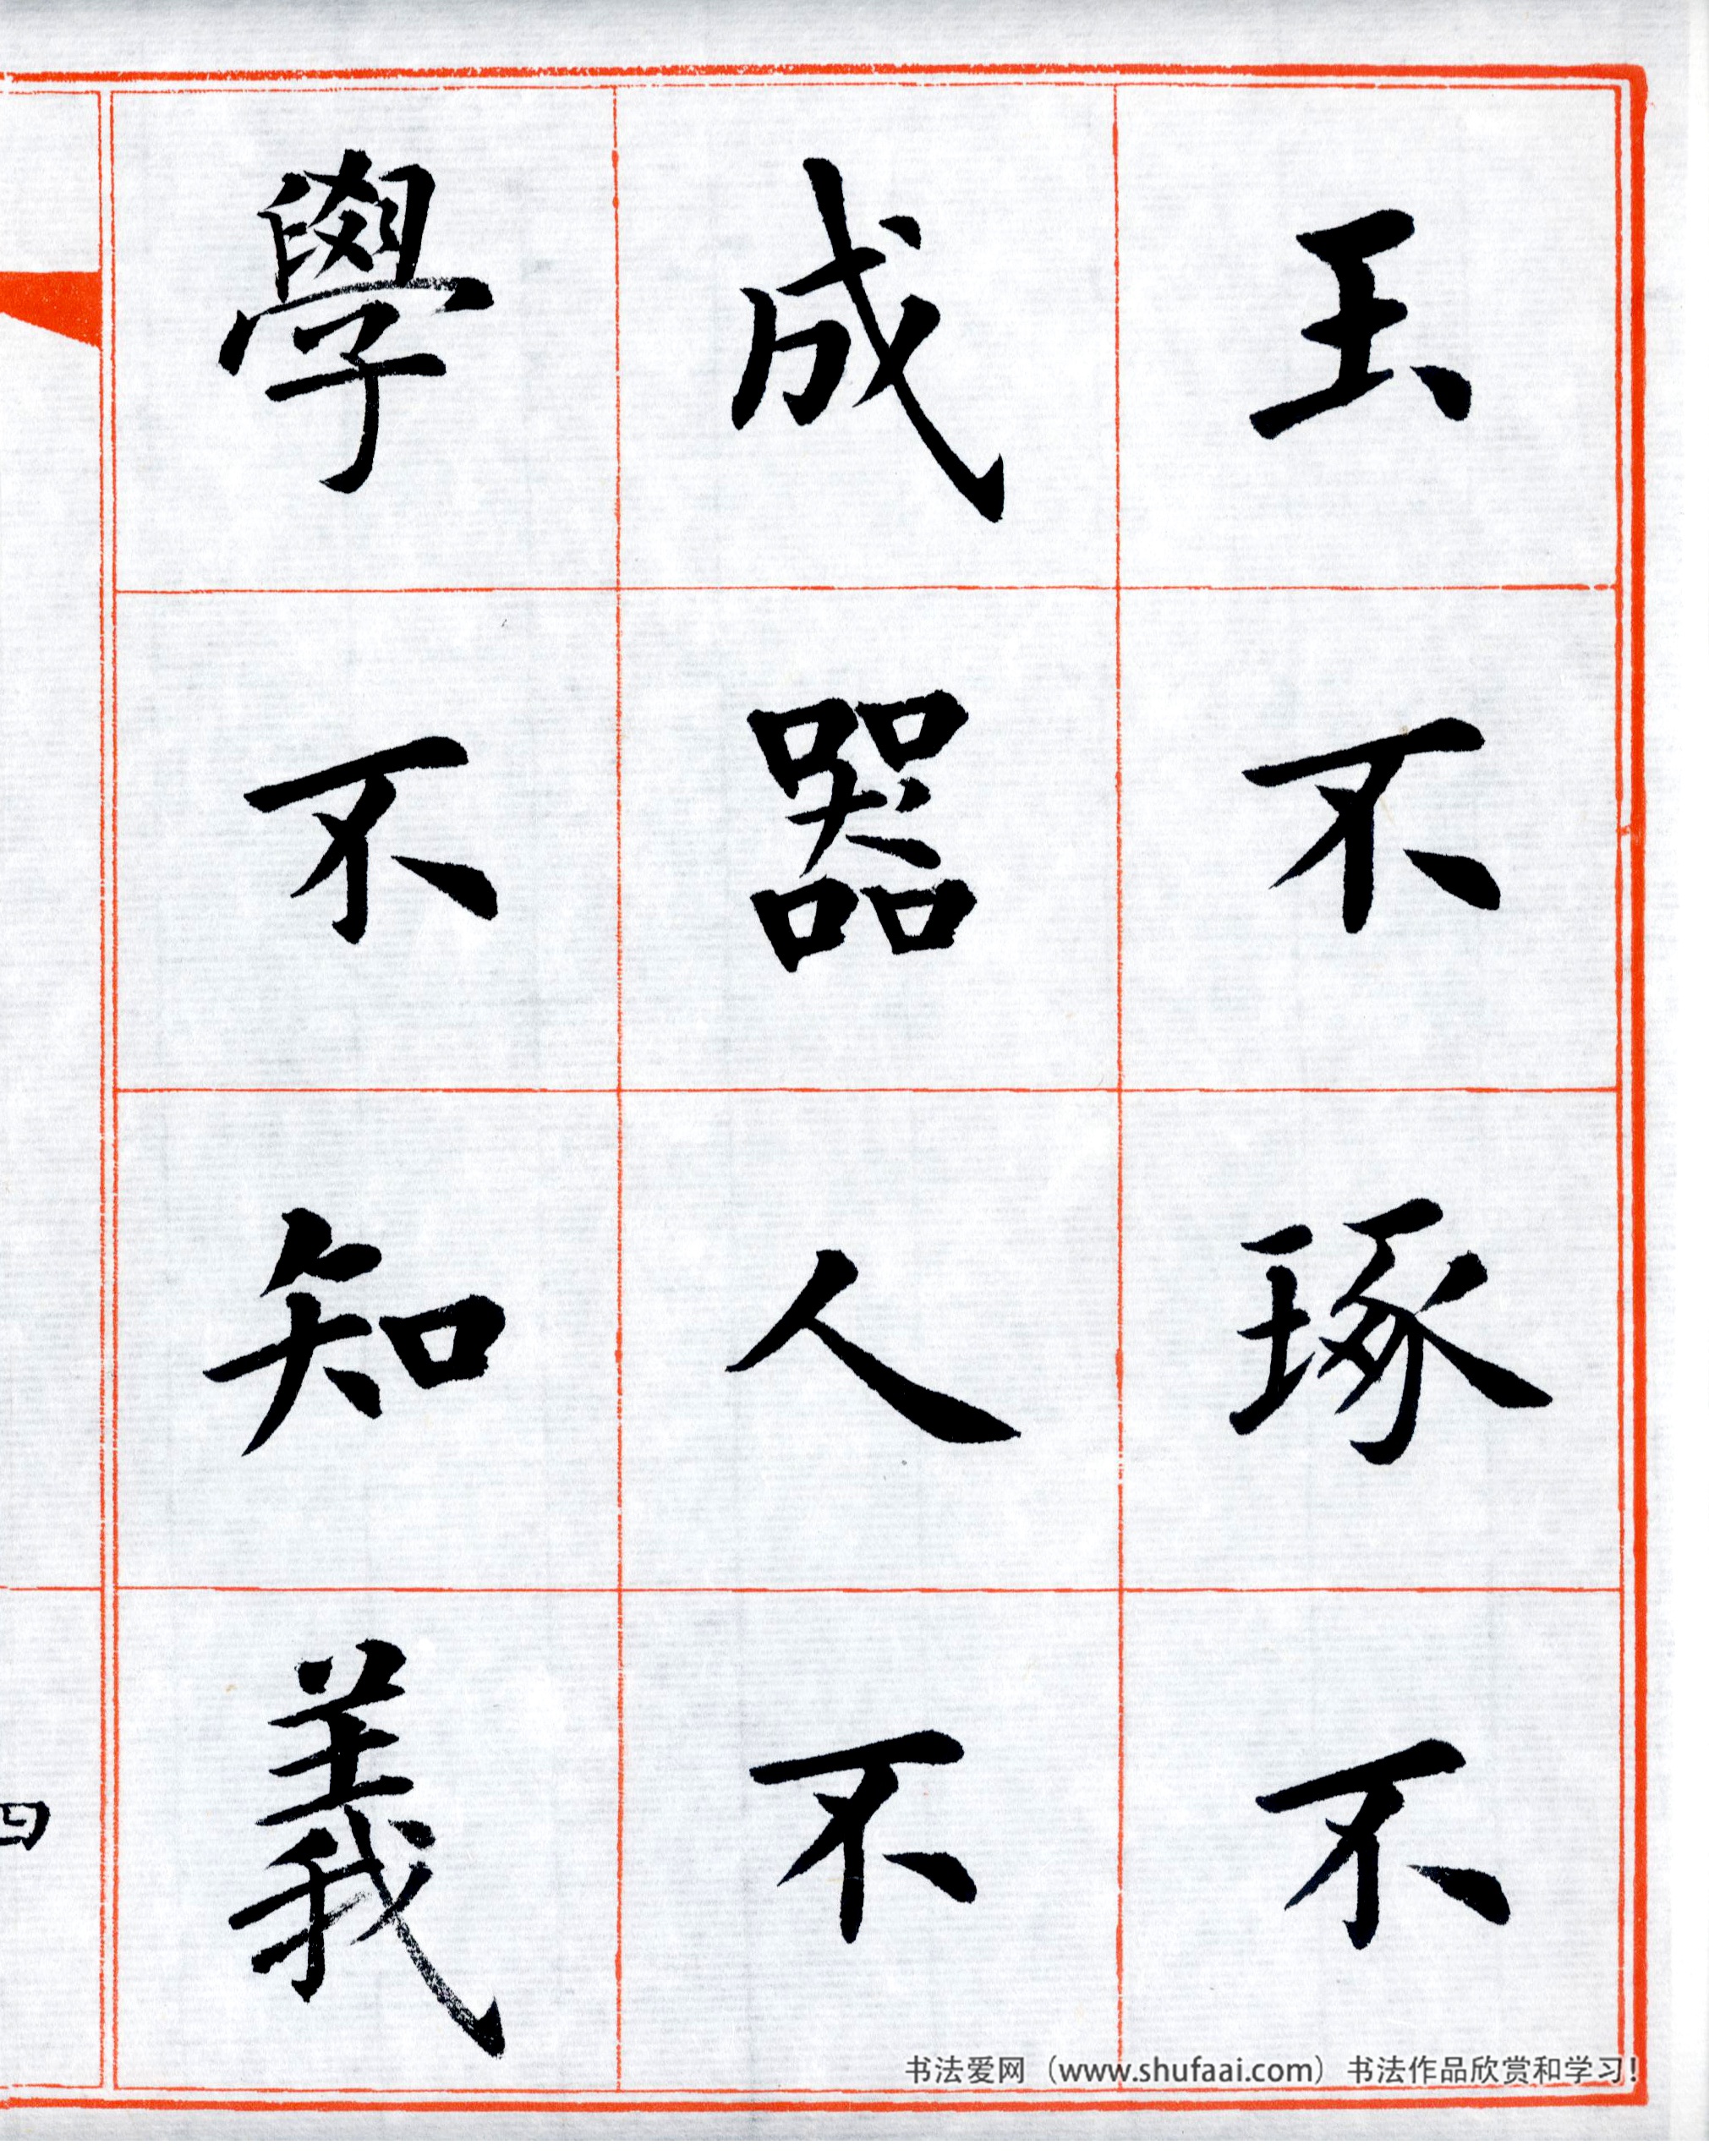 玉不琢不
成器人不
學不知義
四
书法爱网（www.shufaai.com）书法作品欣赏和学习！